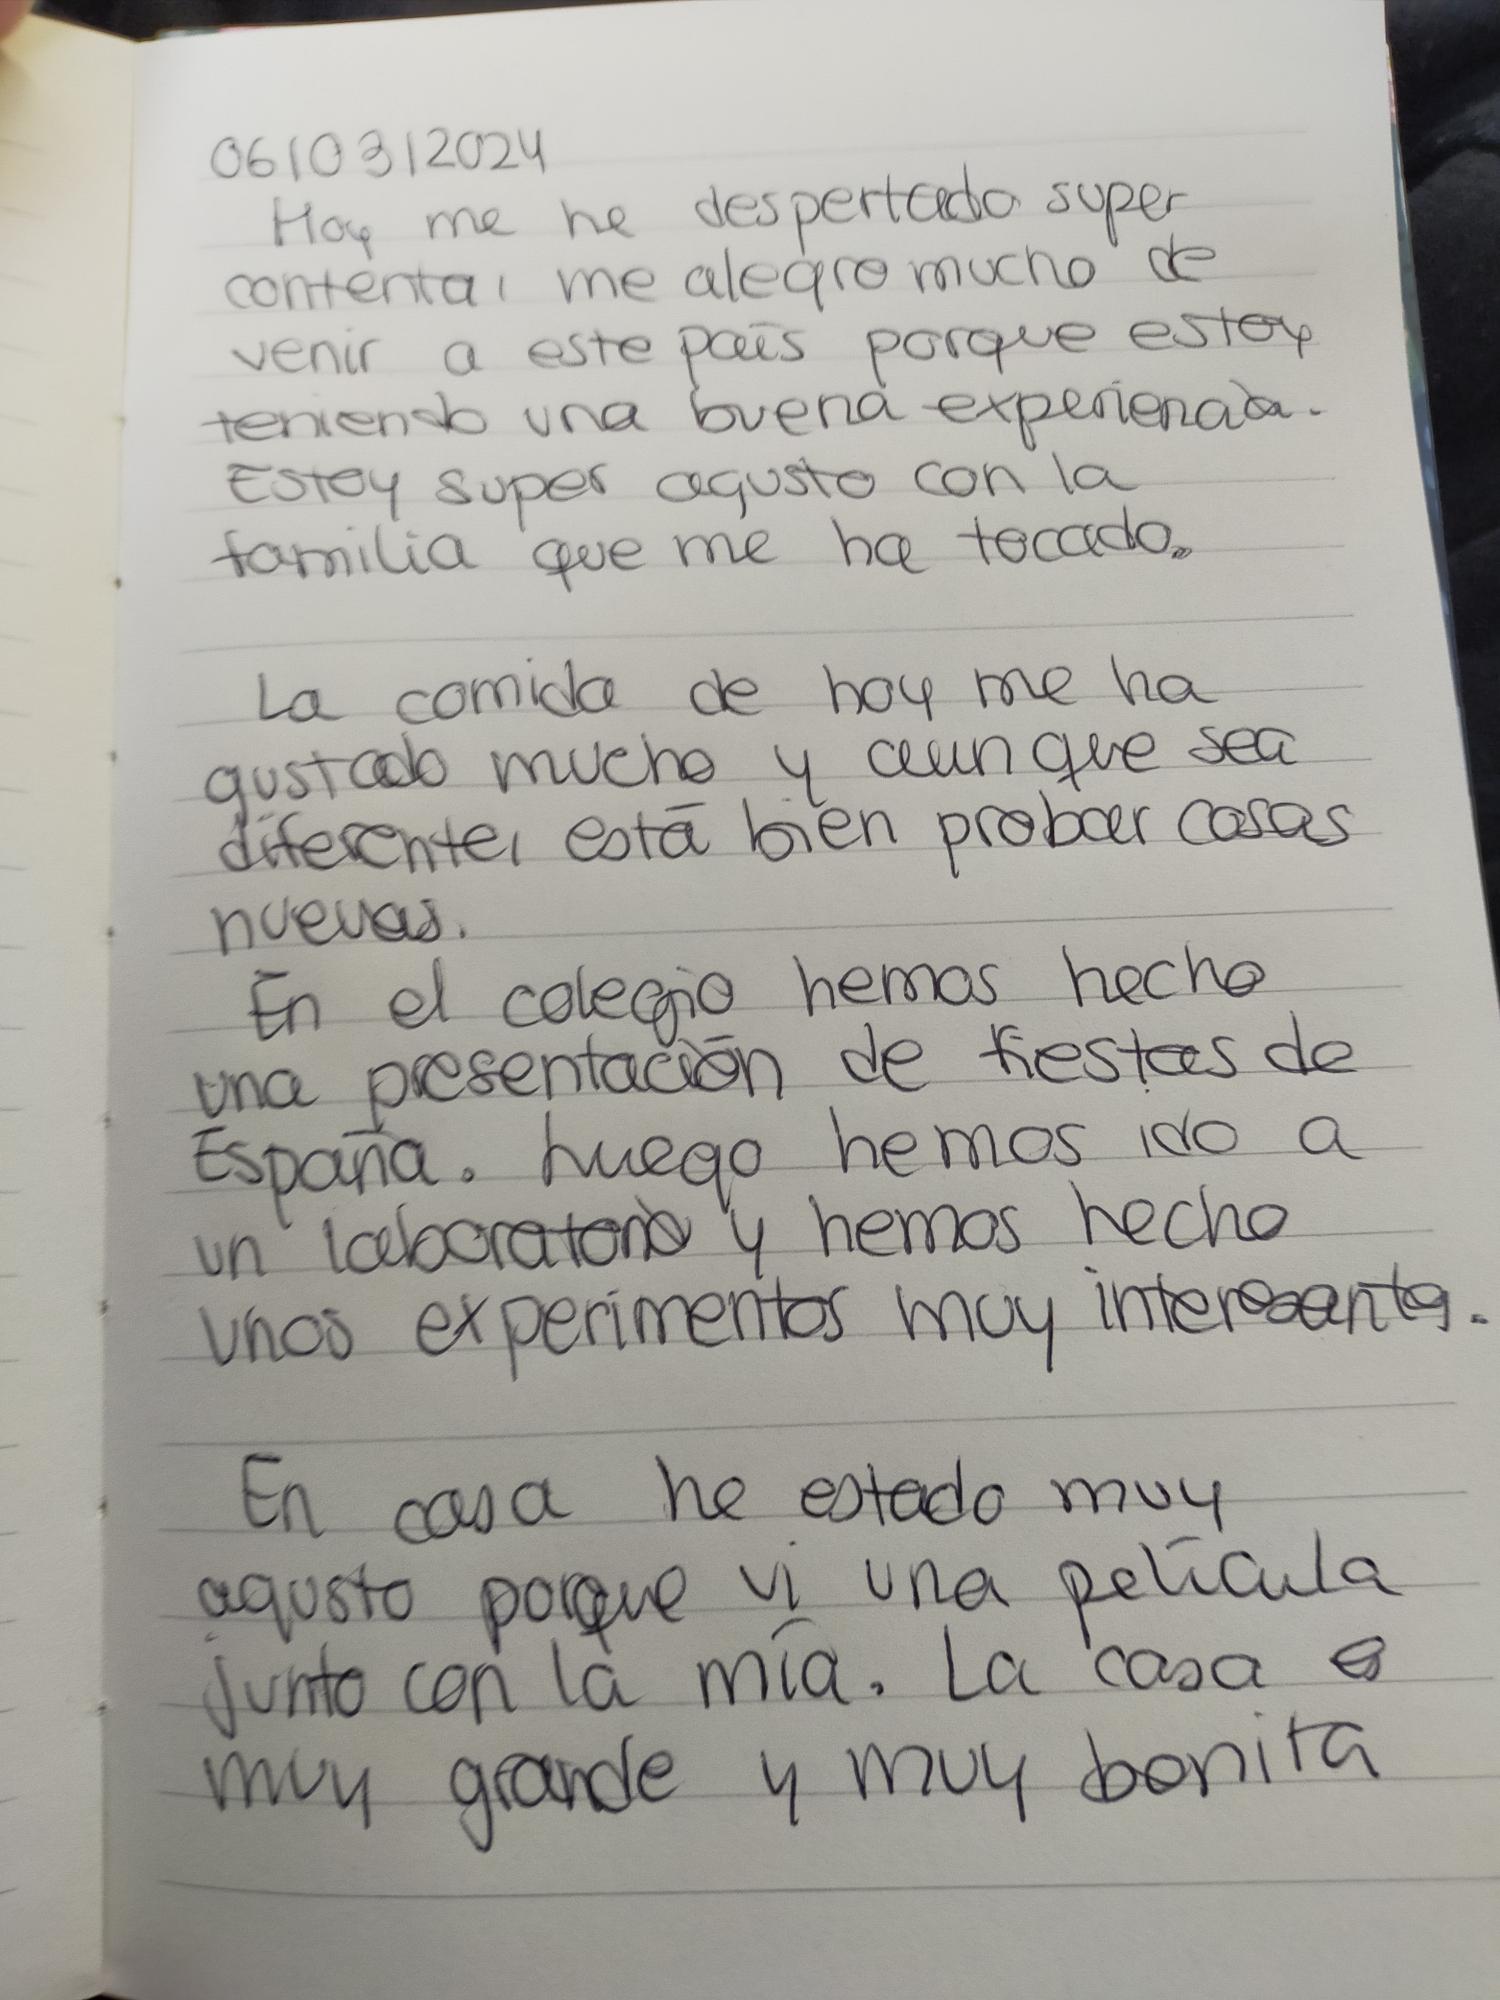 06/03/2024
Hoy me he despertado super
contenta, me alegro mucho de
venir a este país porque estoy
teniendo una buena experiencia.
Estoy super agusto con la
familia que me ha tocado.
La comida de hoy me ha
gustado mucho y aunque sea
diferente, está bien probar cosas
nuevas.
En el colegio hemos hecho
una presentación de fiestas de
España. Luego hemos ido a
un laboratorio y hemos hecho
unos experimentos muy interesantes.
En casa he estado muy
agusto porque vi una película
junto con la mía. La casa es
muy grande y muy bonita